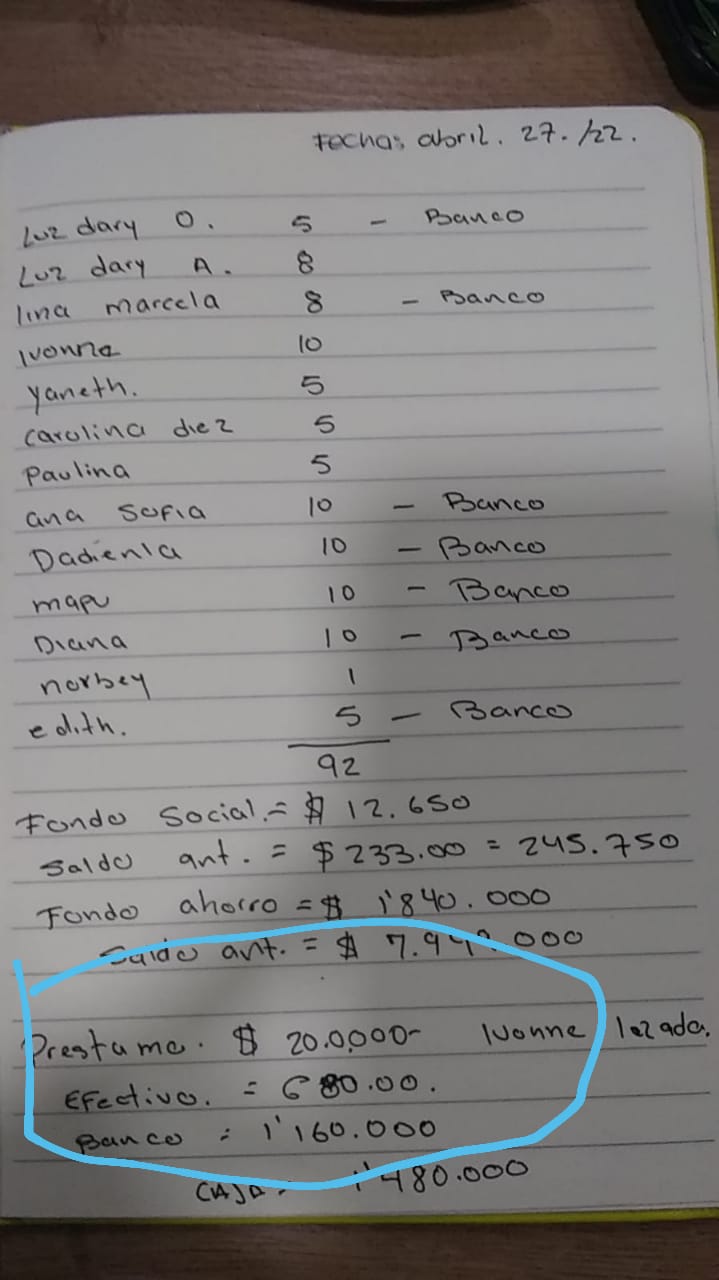 Fecha: abril. 27. /22.
Luz dary O. 5 - Banco
Luz dary A. 8
lina marcela 8 - Banco
Ivonne 10
yaneth. 5
carolina diez 5
Paulina 5
ana Sofia 10 - Banco
Dadienla 10 - Banco
mapu 10 - Banco
Diana 10 - Banco
norbey 1
edith. 5 - Banco
92
Fondo Social. = $ 12.650
Saldo ant. = $ 233.00 = 245.750
Fondo ahorro = $ 1'840.000
Saldo ant. = $ 7.949.000
Prestamo. $ 20.0.000- Ivonne lozada.
Efectivo. = 680.00.
Banco = 1'160.000
CAJA = 1'480.000